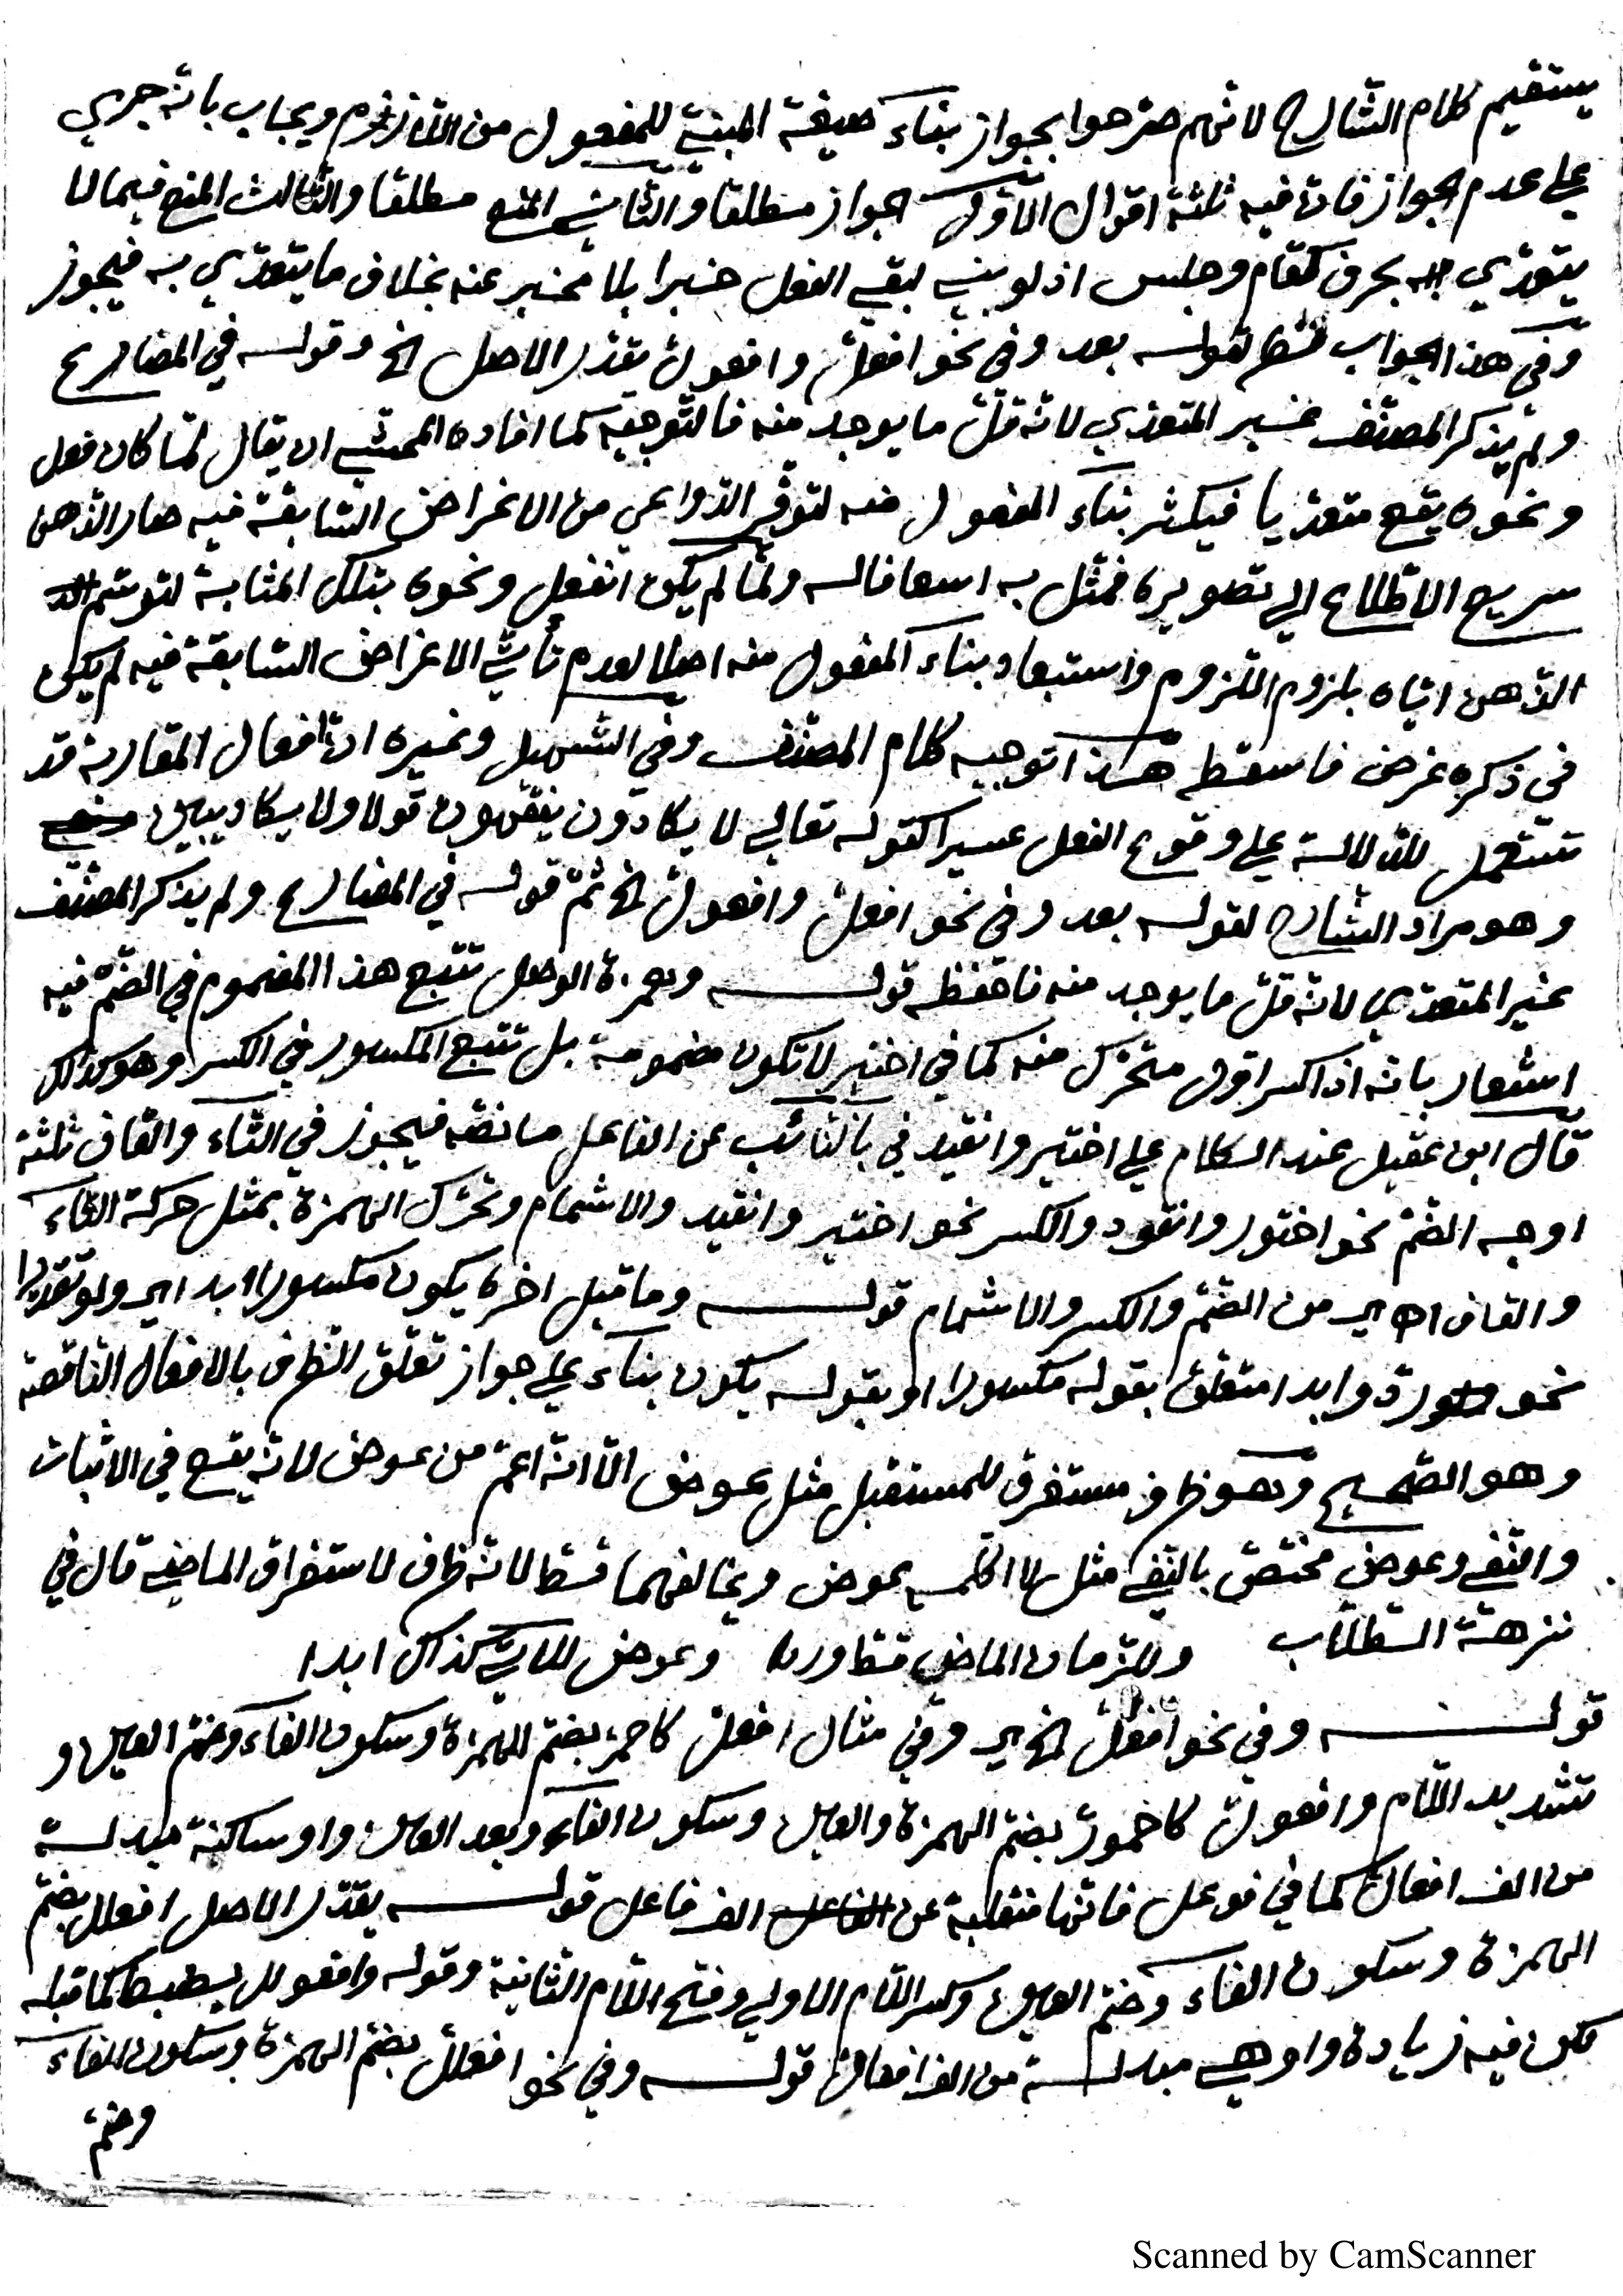 يستقيم كلام الشارح لانهم صرّحوا بجواز بناء صيغة المبنية للمفعول من اللازم ويجاب بانّه جري
علي عدم الجواز فانّ فيه ثلثة اقوال الاوّل الجواز مطلقا والثاني المنع مطلقا والثالث المنع فيما لا
يتعدّي به بحرف كقام وجلس اذ لو بني لبقي الفعل خبرا بلا مخبر عنه بخلاف ما يتعدّي به فيجوز
وفي هذا الجواب نظر لقوله بعد وفي نحو افعلّ وافعولّ يقدّر الاصل الخ وقوله في المضارع
ولم يذكر المصنّف غير المتعدّي لانّه قلّ ما يوجد منه فالتّوجيه كما افاده المحشّي ان يقال لمّا كان فعل
ونحوه يقع متعدّيا فيكثر بناء المفعول منه لتوفّر الدّواعي من الاغراض السّابقة فيه صار الذّهن
سريع الاطّلاع الي تصويره فمثّل به اسعافا له ولمّا لم يكن انفعل ونحوه بتلك المثابة لتوسّم
الذّهن ايّاه بلزوم اللّزوم واستبعاد بناء المفعول منه اصلا لعدم تأتّي الاغراض السّابقة فيه لم يكن
في ذكره غرض فاسقطه هكذا توجيه كلام المصنّف وفي التّسهيل وغيره انّ افعال المقاربة قد
تستعمل للدّلالة علي وقوع الفعل عسيرا كقوله تعالي لا يكادون يفقهون قولا ولا يكاد يبين
وهو مراد الشارح لقوله بعد وفي نحو افعلّ وافعولّ الخ ثمّ قوله في المضارع ولم يذكر المصنّف
غير المتعدّي لانّه قلّ ما يوجد منه فاحفظه قوله وهمزة الوصل تتبع هذا المضموم في الضّمّ فيه
اشعار بانّه اذا كسر اوّل متحرّك منه كما في اختير لا تكون مضمومة بل تتبع المكسور في الكسر وهو كذلك
قال ابن عقيل عند الكلام علي اختير وانقيد في باب النّائب عن الفاعل ما نصّه فيجوز في التّاء والقاف ثلثة
اوجه الضّمّ نحو اختور وانقود والكسر نحو اختير وانقيد والاشمام وتحرّك الهمزة بمثل حركة التّاء
والقاف اي من الضّمّ والكسر والاشمام قوله وما قبل اخره يكون مكسورا ابدا اي ولو تقديرا
نحو وابدا متعلّق بقوله مكسورا او بقوله يكون بناء علي جواز تعلّق الظرف بالافعال النّاقصة
وهو الصّحيح وهو ظرف مستغرق للمستقبل مثل عوض الّا انّه اعمّ من عوض لانّه يقع في الاثبات
والنّفي وعوض مختصّ بالنّفي مثل لا اكلّمه عوض ويخالفهما قطّ لانّه ظرف لاستغراق الماضي قال في
نزهة الطّلّاب وللزّمان الماضي قطّ اوردا وعوض للاتي كذاك ابدا
قوله وفي نحو افعلّ الخ اي وفي مثال افعلّ كاحمرّ بضمّ الهمزة وسكون الفاء وضمّ العين و
تشديد اللّام وافعولّ كاحمورّ بضمّ الهمزة والعين وسكون الفاء وبعد العين واو ساكنة مبدلة
من الف افعالّ كما في فوعل فانّها منقلبة عن الف فاعل قوله يقدّر الاصل افعلل بضمّ
الهمزة وسكون الفاء وضمّ العين وكسر اللّام الاولي وفتح اللّام الثّانية وقوله وافعولل يضبط كما قبله
لكن فيه زيادة واو هي مبدلة من الف افعالّ قوله وفي نحو افعللّ بضمّ الهمزة وسكون الفاء
وضمّ
Scanned by CamScanner